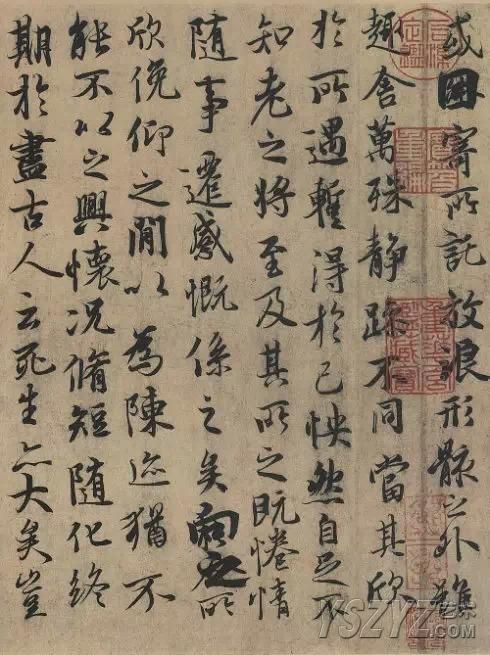 或因寄所託放浪形骸之外雖
趣舍萬殊静躁不同當其欣
於所遇蹔得於己怏然自足不
知老之將至及其所之既惓情
隨事遷感慨係之矣向之所
欣俛仰之閒以為陳迹猶不
能不以之興懷況脩短隨化終
期於盡古人云死生亦大矣豈